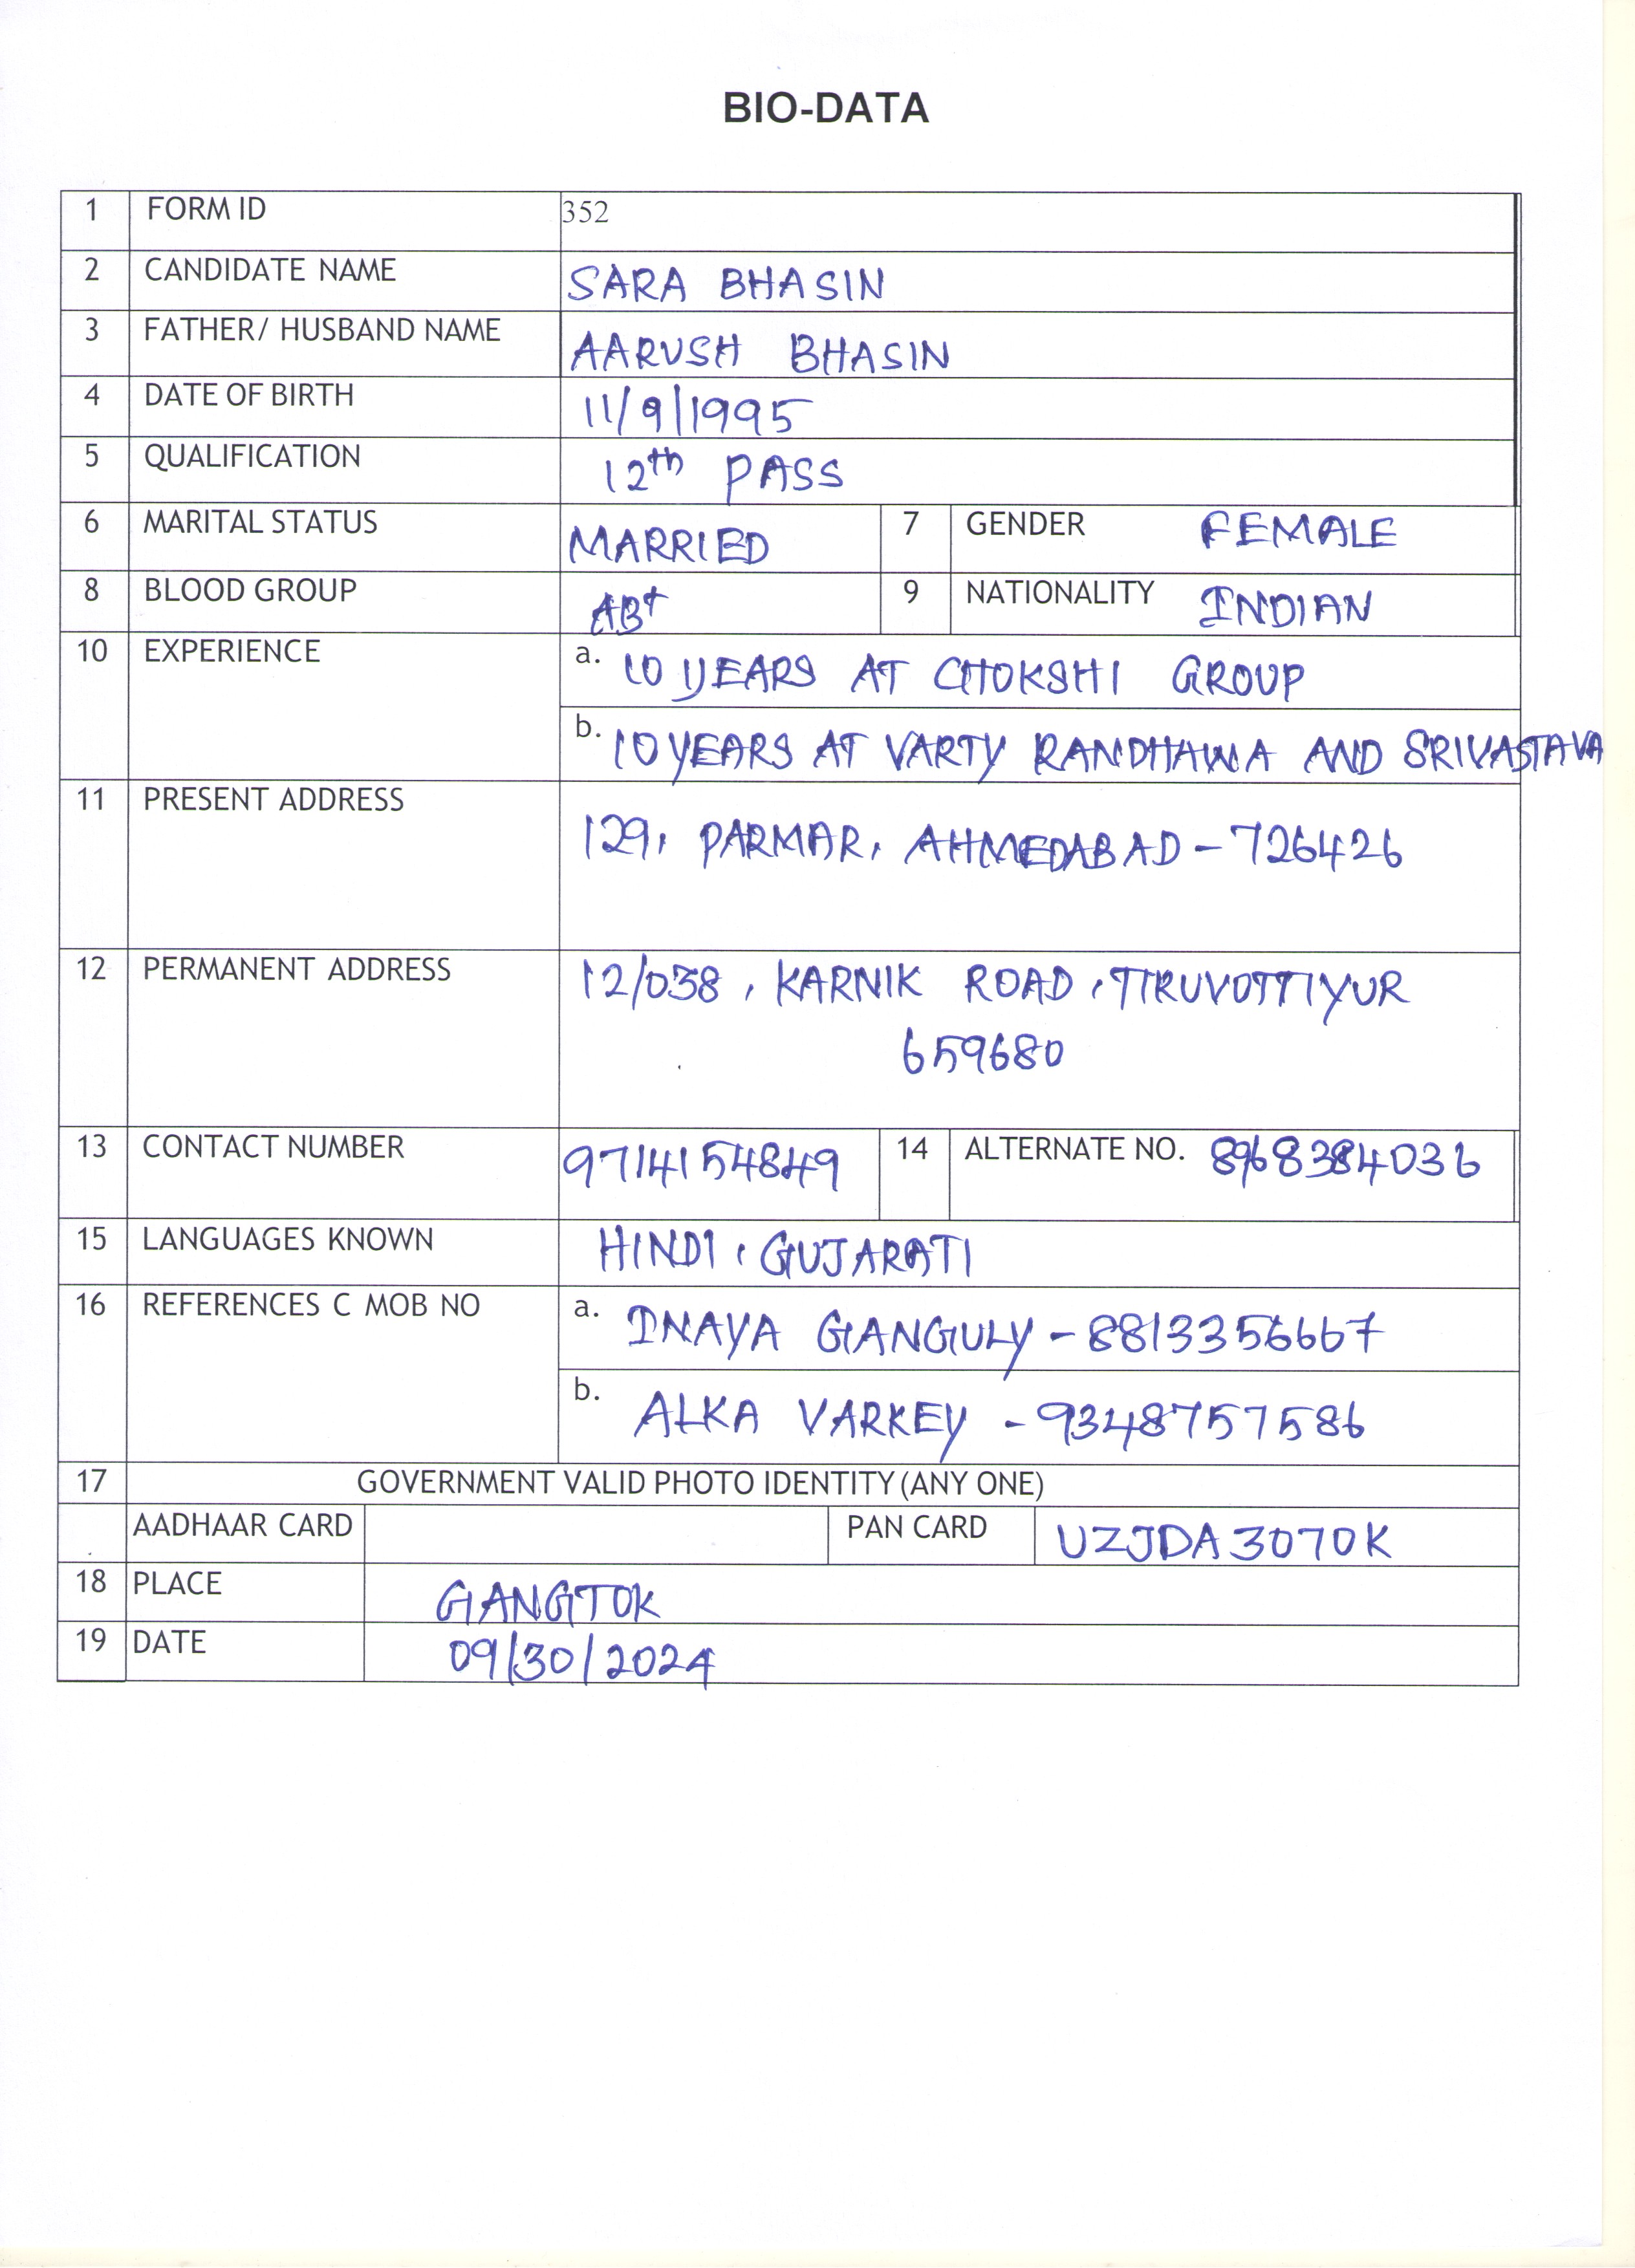 BIO-DATA
1 FORM ID 352
2 CANDIDATE NAME SARA BHASIN
3 FATHER/ HUSBAND NAME AARUSH BHASIN
4 DATE OF BIRTH 11/9/1995
5 QUALIFICATION 12th PASS
6 MARITAL STATUS MARRIED 7 GENDER FEMALE
8 BLOOD GROUP AB+ 9 NATIONALITY INDIAN
10 EXPERIENCE a. 10 YEARS AT CHOKSHI GROUP
b. 10 YEARS AT VARTY RANDHAWA AND SRIVASTAVA
11 PRESENT ADDRESS 129, PARMAR, AHMEDABAD - 726426
12 PERMANENT ADDRESS 12/038, KARNIK ROAD, TIRUVOTTIYUR
659680
13 CONTACT NUMBER 9714154849 14 ALTERNATE NO. 8968384036
15 LANGUAGES KNOWN HINDI, GUJARATI
16 REFERENCES C MOB NO a. INAYA GANGULY - 8813356667
b. ALKA VARKEY - 9348757586
17 GOVERNMENT VALID PHOTO IDENTITY (ANY ONE)
AADHAAR CARD PAN CARD UZJDA3070K
18 PLACE GANGTOK
19 DATE 09/30/2024